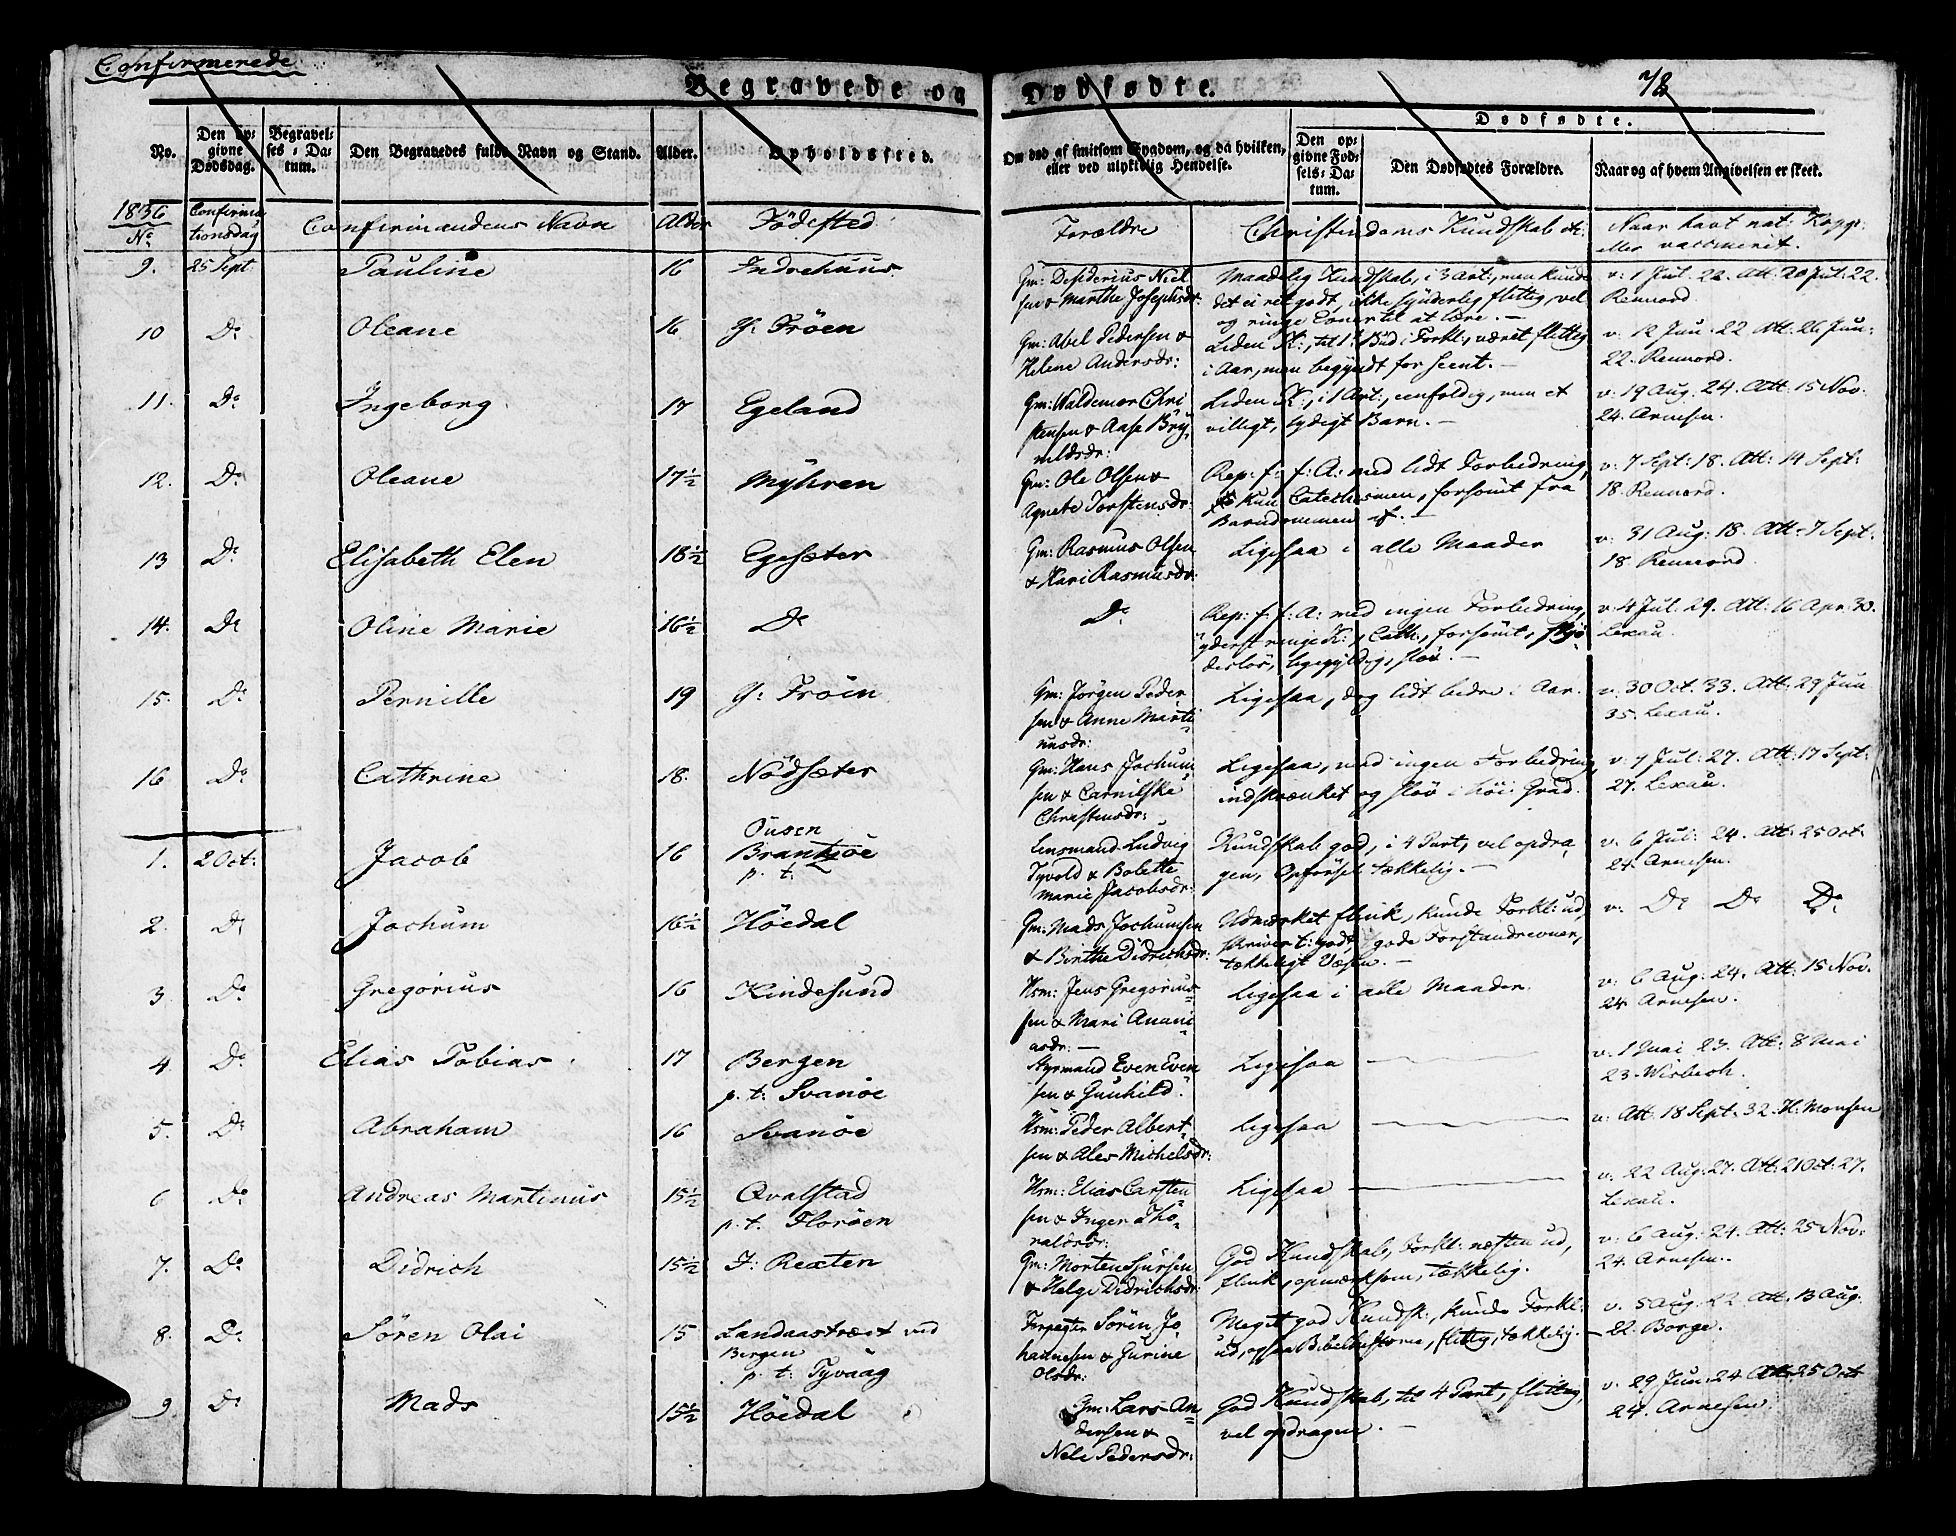 Confirmerede
Begravede og Dødfødte.
78
No.
Den opgivne Dødsdag.
Begravelses-Datum.
Den Begravedes fulde Navn og Stand.
Alder.
Opholdssted.
Om død af smitsom Sygdom, og da hvilken, eller ved ulykkelig Hendelse.
Dødfødte.
Den opgivne Fødsels-Datum.
Den Dødfødtes Forældre.
Naar og af hvem Angivelsen er skeet.
1836 No Confirmationsdag Confirmandens Navn Alder Födested Forældre Christendoms Kundskab etc. Naar havt nat: Kopp: eller vaccineret.
9. 25 Sept: Pauline 16 Indrehuus Gm: Desiderius Niel
sen & Marthe Josephsdr: Maadelig Kundskab, i 3 Art:, men kunde
det ei ret godt, ikke synderlig flittig, vel
og ringe Evner til at lære. — v: 1 Jul: 22. Att: 20 Jul: 22.
Rennord.
10 Do Oleane 16 G: Tröen Gm: Abel Pedersen &
Helene Andersdr: Liden K:, til 1t Bud i Forkl:, været flittig
i Aar, men begyndt for seent. — v: 12 Jun: 22 Att: 26 Jun:
22. Rennord.
11. Do Ingeborg 17 Egeland Gm: Waldemor Chri
stensen & Aase Bry
nildsdr: Liden K:, i 1 Art:, eenfoldig, men et
villigt, lydigt Barn. — v: 19 Aug: 24. Att: 15 Nov.
24. Arnesen.
12. Do Oleane 17½ Myhren Gm: Ole Olsen &
Agnete Torstensdr: Rep: f: f: A: med lidt Forbedring,
kun Catechismen, forsömt fra
Barndommen af. — v: 7 Sept: 18. Att: 14 Sept:
18. Rennord.
13 Do Elisabeth Elen 18½ Egesæter Gm: Rasmus Olsen
& Kari Rasmusdr: Ligesaa i alle Maader v: 31 Aug: 18. Att: 7 Sept:
18. Rennord.
14. Do Oline Marie 16½ Do Do Rep: f: f: A: med ingen Forbedring,
yderst ringe K:, Cath:, forsömt, skjö
deslös, ligegyldig, slöv. — v: 4 Jul: 29. Att: 16 Apr: 30.
Lexau.
15. Do Pernille 19 G: Tröen Gm: Jörgen Peder
sen & Anne Marti
nusdr: Ligesaa, dog lidt bedre i Aar. v: 30 Oct: 33. Att: 29 Jun
35. Lexau.
16 Do Cathrine 18. Nödsæter Gm: Hans Jochum
sen & Carnilske
Christensdr: Ligesaa, med ingen Forbedring,
indskrænket og slöv i höi Grad. v: 7 Jul: 27. Att: 17 Sept:
27. Lexau.
1. 2 Oct: Jacob 16 Ousen
Brantsöe
p. t. Lensmand Ludvig
Tyvold & Bolette
Marie Jacobsdr: Kundskab god, i 4 Part, vel opdra
gen, Opförsel tækkelig. — v: 6 Jul: 24. Att: 25 Oct:
24. Arnesen.
2. Do Jochum 16½ Höedal Gm: Mads Jochumsen
& Birthe Didrichsdr: Udmærket flink, kunde Forkl: ud,
skriver t: godt, gode Forstandsevner,
tækkeligt Væsen. — v: Do Do Do
3. Do Gregorius 16 Kindesund Hsm: Jens Gregorius
sen & Mari Anani
asdr: — Ligesaa i alle Maader. v: 6 Aug: 24. Att: 15 Nov.
24. Arnesen.
4. Do Elias Tobias 17 Bergen
p. t: Svanöe Styrmand Even Even
sen & Gunhild. Ligesaa — v: 1 Mai 23. Att: 8 Mai
23. Wisbech.
5. Do Abraham 16 Svanöe Hsm: Peder Albert
sen & Ales Michelsdr: Ligesaa — v: Att: 18 Sept: 32. H. Monsen
6 Do Andreas Martinus 15½ Qvalstad
p. t. Floröen Hsm: Elias Carsten
sen & Inger Tho
raldsdr: Ligesaa — v: 22 Aug: 27. Att: 2 Oct: 27.
Lexau.
7. Do Didrich 15½ I: Rexten Gm: Morten Sjursen
& Helge Didrichsdr: God Kundskab, Forkl: næsten ud,
flink, opmærksom, tækkelig. v: 6 Aug: 24. Att: 25 Nov:
24. Arnesen.
8. Do Sören Olai 15 Landaastrædt ved
Bergen
p. t: Tyvaag Forpagter Sören Jo
hannesen & Gurine
Olsdr: Meget god Kundsk:, kunde Forkl:
ud, ogsaa Bibelhistorie, flittig, tækkelig. v: 5 Aug: 22 Att: 13 Aug:
22. Borge.
9 Do Mads 15½ Höedal Gm: Lars An
dersen &
Nele Pedersdr: God Kundskab, til 4 Part, flittig,
vel opdragen. — v: 29 Jun: 24 Att: 25 Oct
24. Arnesen.